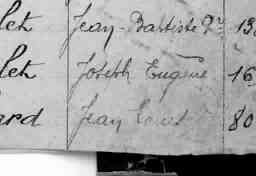 let Jean-Baptiste Pre 13
let Joseph Eugène 16
ard Jean Louis 80